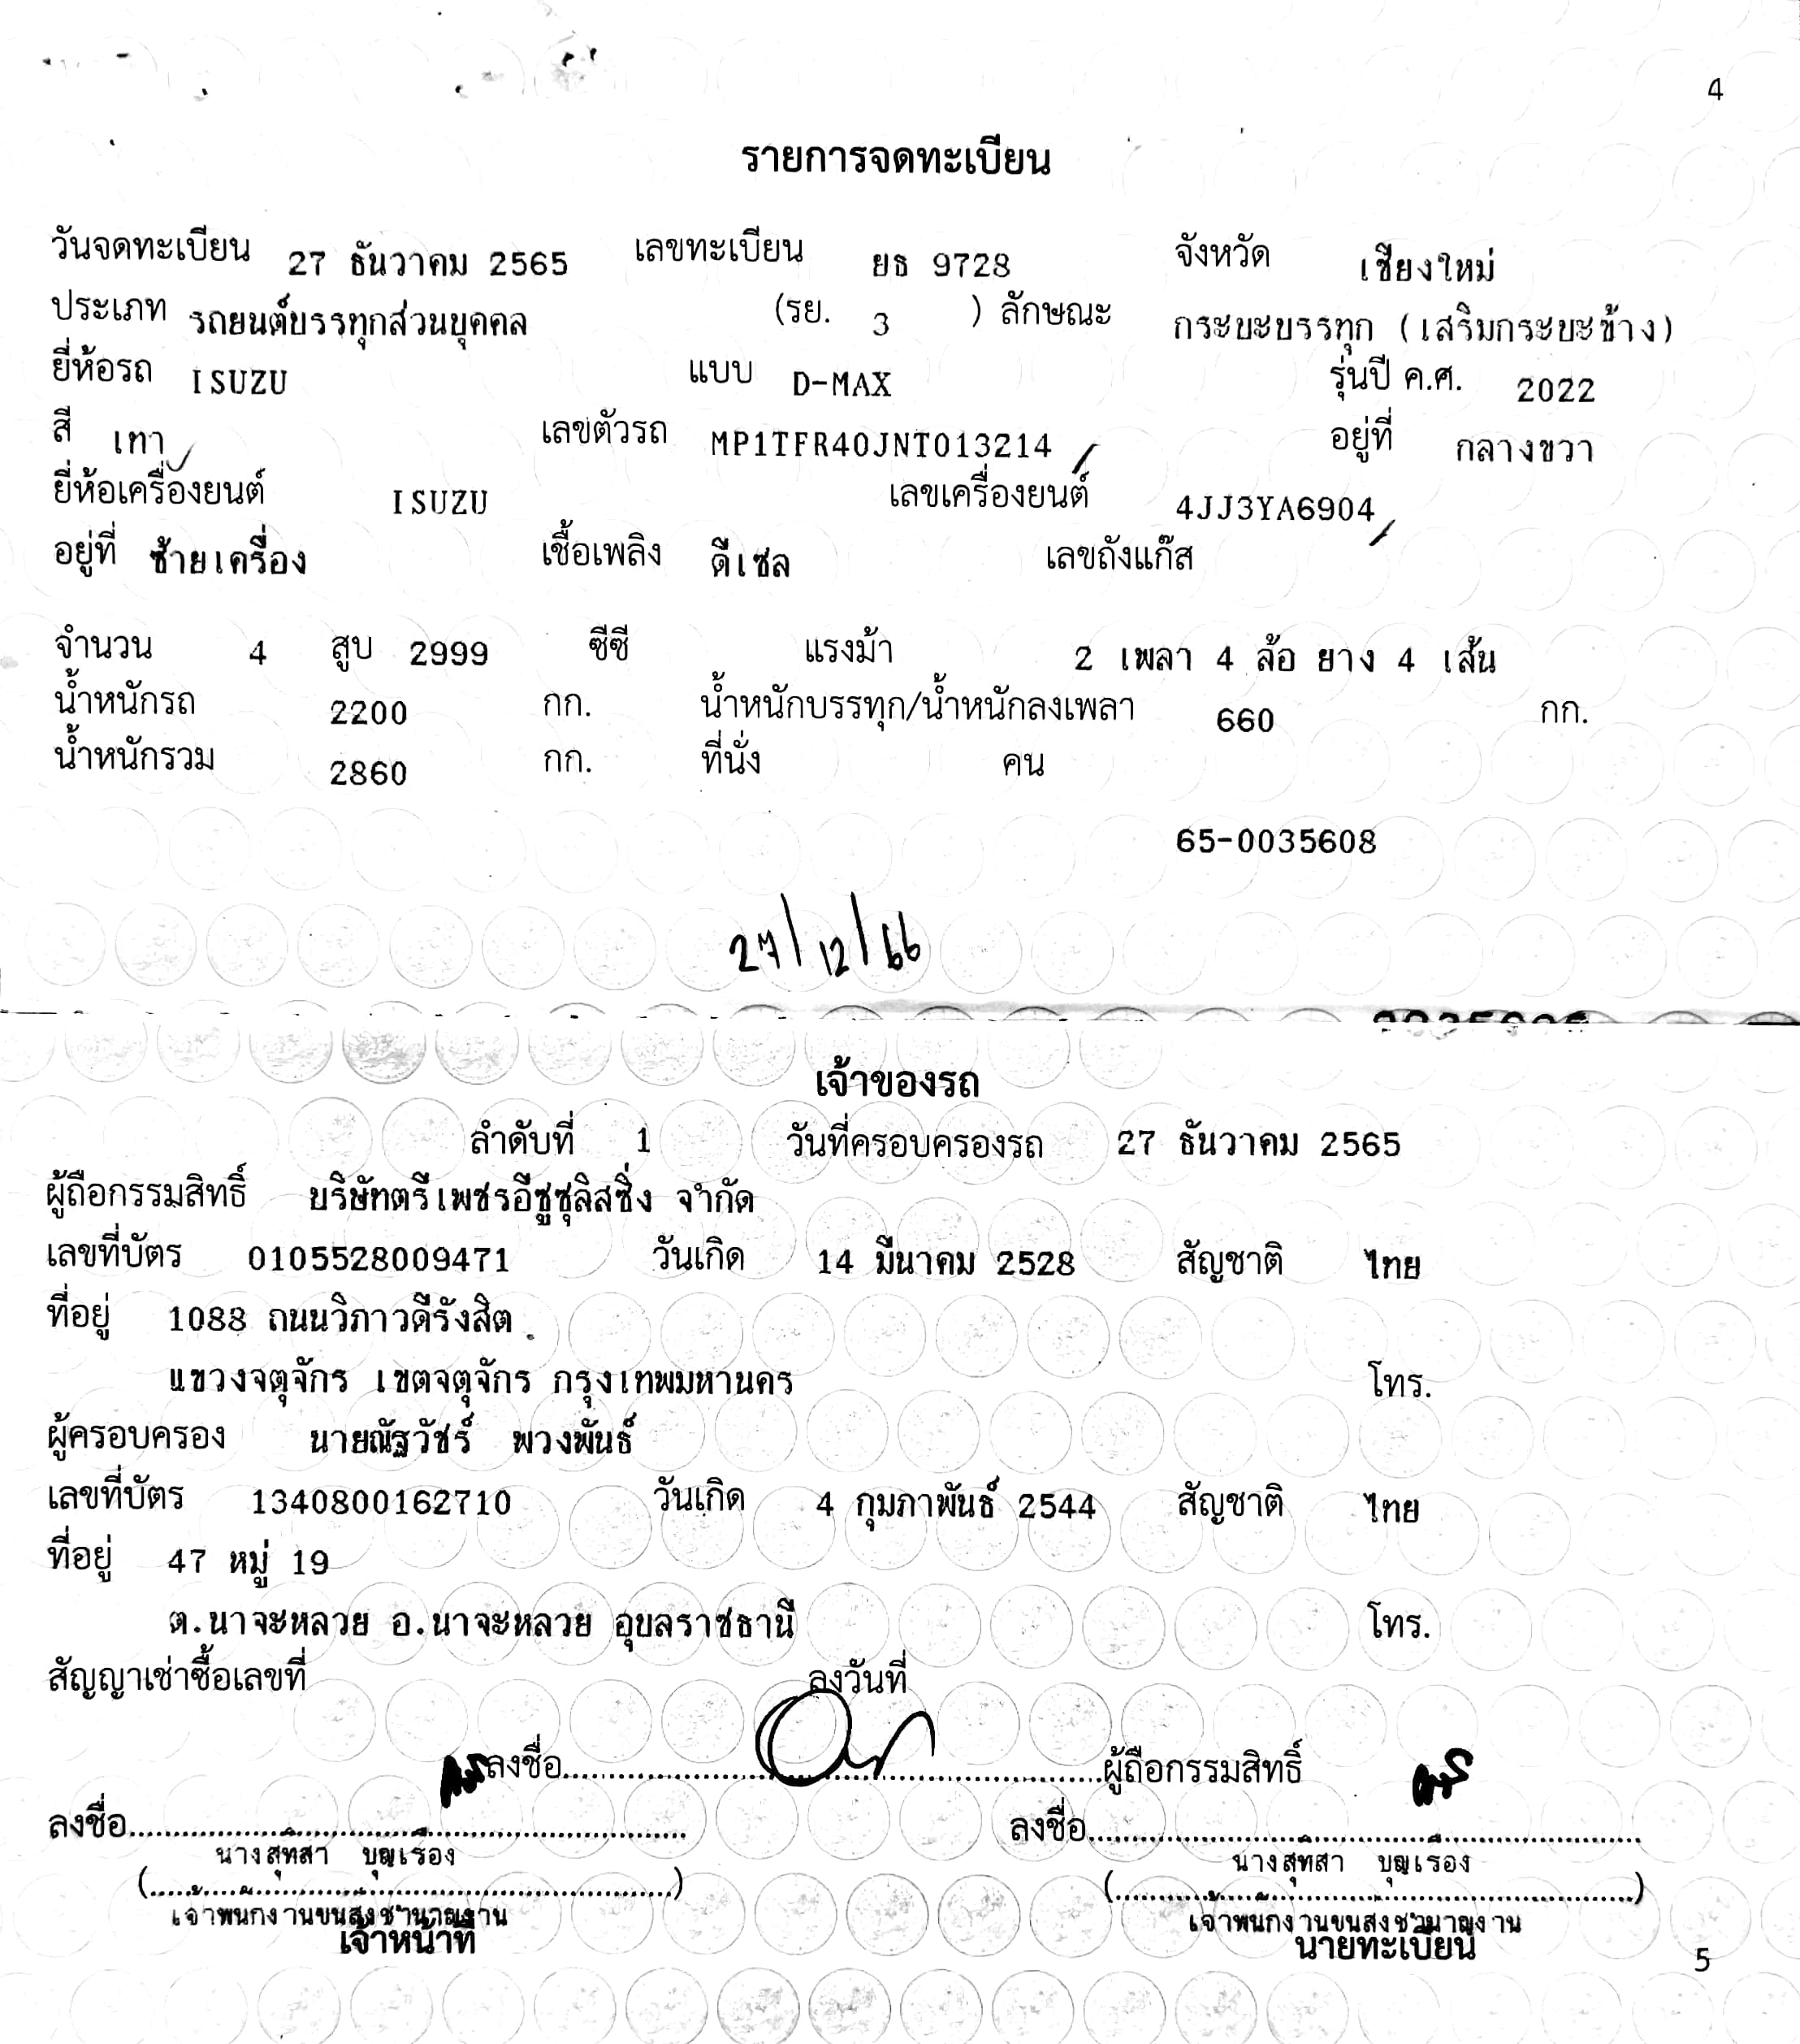 4
รายการจดทะเบียน
วันจดทะเบียน 27 ธันวาคม 2565 เลขทะเบียน ยธ 9728 จังหวัด เชียงใหม่
ประเภท รถยนต์บรรทุกส่วนบุคคล (รย. 3 ) ลักษณะ กระบะบรรทุก (เสริมกระบะข้าง)
ยี่ห้อรถ ISUZU แบบ D-MAX รุ่นปี ค.ศ. 2022
สี เทา เลขตัวรถ MP1TFR40JNT013214 อยู่ที่ กลางขวา
ยี่ห้อเครื่องยนต์ ISUZU เลขเครื่องยนต์ 4JJ3YA6904
อยู่ที่ ซ้ายเครื่อง เชื้อเพลิง ดีเซล เลขถังแก๊ส
จำนวน 4 สูบ 2999 ซีซี แรงม้า 2 เพลา 4 ล้อ ยาง 4 เส้น
น้ำหนักรถ 2200 กก. น้ำหนักบรรทุก/น้ำหนักลงเพลา 660 กก.
น้ำหนักรวม 2860 กก. ที่นั่ง คน
65-0035608
27/12/66
เจ้าของรถ
ลำดับที่ 1 วันที่ครอบครองรถ 27 ธันวาคม 2565
ผู้ถือกรรมสิทธิ์ บริษัทตรีเพชรอีซูซุลิสซิ่ง จำกัด
เลขที่บัตร 0105528009471 วันเกิด 14 มีนาคม 2528 สัญชาติ ไทย
ที่อยู่ 1088 ถนนวิภาวดีรังสิต
แขวงจตุจักร เขตจตุจักร กรุงเทพมหานคร โทร.
ผู้ครอบครอง นายณัฐวัชร์ พวงพันธ์
เลขที่บัตร 1340800162710 วันเกิด 4 กุมภาพันธ์ 2544 สัญชาติ ไทย
ที่อยู่ 47 หมู่ 19
ต.นาจะหลวย อ.นาจะหลวย อุบลราชธานี โทร.
สัญญาเช่าซื้อเลขที่ ลงวันที่
ลงชื่อ ผู้ถือกรรมสิทธิ์
ลงชื่อ ลงชื่อ
นางสุทิสา บุญเรือง นางสุทิสา บุญเรือง
( ) ( )
เจ้าพนักงานขนส่งชำนาญงาน เจ้าพนักงานขนส่งชำนาญงาน
เจ้าหน้าที่ นายทะเบียน
5